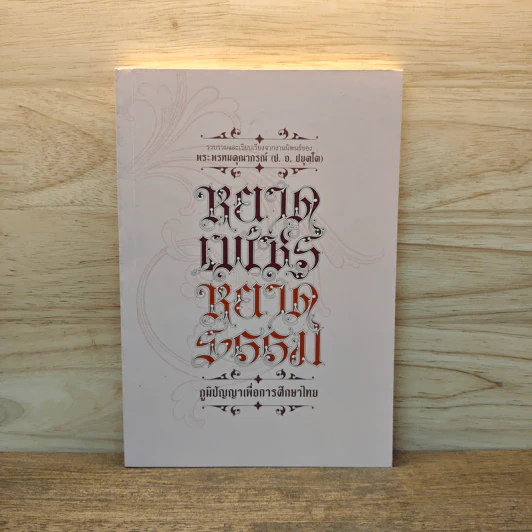 รวบรวมและเรียบเรียงจากงานนิพนธ์ของ
พระพรหมคุณาภรณ์ (ป. อ. ปยุตฺโต)
หยาด
เพชร
หยาด
ธรรม
ภูมิปัญญาเพื่อการศึกษาไทย